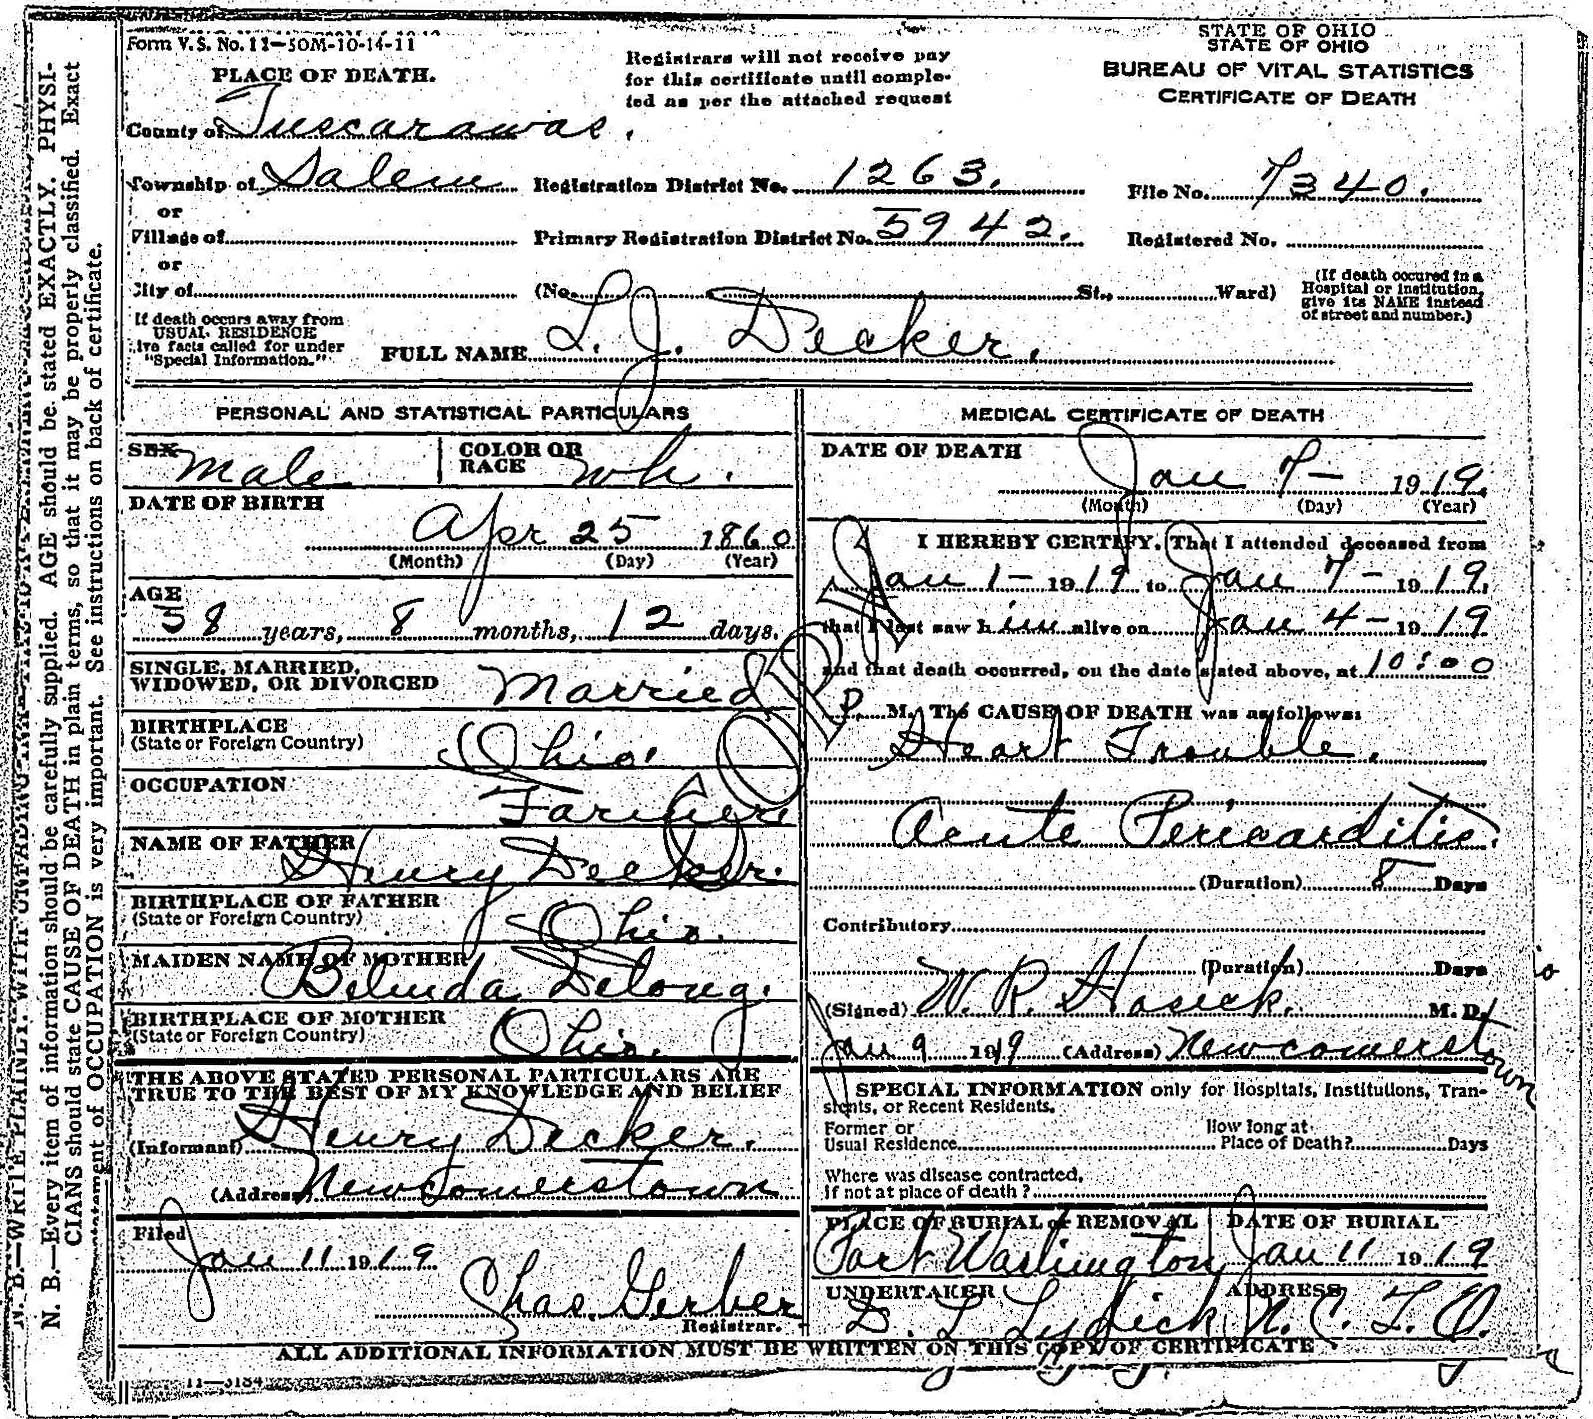 Form V. S. No. 11—50M-10-14-11
PLACE OF DEATH.
Registrars will not receive pay
for this certificate until comple-
ted as per the attached request
STATE OF OHIO
STATE OF OHIO
BUREAU OF VITAL STATISTICS
CERTIFICATE OF DEATH
County of Tuscarawas.
Township of Salem Registration District No. 1263. File No. 7340.
or
Village of Primary Registration District No. 5942. Registered No.
or
City of (No. St., Ward)
(If death occured in a
Hospital or Institution,
give its NAME instead
of street and number.)
If death occurs away from
USUAL RESIDENCE
ive facts called for under
"Special Information."
FULL NAME L. J. Decker.
PERSONAL AND STATISTICAL PARTICULARS
SEX Male COLOR OR RACE Wh.
DATE OF BIRTH
Apr 25 1860
(Month) (Day) (Year)
AGE
58 years, 8 months, 12 days.
SINGLE, MARRIED,
WIDOWED, OR DIVORCED Married
BIRTHPLACE
(State or Foreign Country) Ohio.
OCCUPATION
Farmer
NAME OF FATHER
Henry Decker.
BIRTHPLACE OF FATHER
(State or Foreign Country) Ohio.
MAIDEN NAME OF MOTHER
Belinda Delong.
BIRTHPLACE OF MOTHER
(State or Foreign Country) Ohio.
THE ABOVE STATED PERSONAL PARTICULARS ARE
TRUE TO THE BEST OF MY KNOWLEDGE AND BELIEF
(Informant) Henry Decker.
(Address) Newcomerstown
Filed
Jan 11 1919
Chas. Gerber
Registrar.
MEDICAL CERTIFICATE OF DEATH
DATE OF DEATH
Jan 7- 1919.
(Month) (Day) (Year)
I HEREBY CERTIFY, That I attended deceased from
Jan 1- 1919 to Jan 7- 1919.
that I last saw h im alive on Jan 4- 1919
and that death occurred, on the date stated above, at 10:00
P. M. The CAUSE OF DEATH was as follows:
Heart Trouble.
Acute Pericarditis.
(Duration) 8 Days
Contributory
(Duration) Days
(Signed) W. R. Hosick. M. D.
Jan 9 1919 (Address) Newcomerstown
SPECIAL INFORMATION only for Hospitals, Institutions, Tran-
sients, or Recent Residents.
Former or
Usual Residence
How long at
Place of Death? Days
Where was disease contracted,
If not at place of death?
PLACE OF BURIAL or REMOVAL DATE OF BURIAL
Port Washington Jan 11 1919
UNDERTAKER ADDRESS
D. L. Lydick N. C. T. O.
ALL ADDITIONAL INFORMATION MUST BE WRITTEN ON THIS COPY OF CERTIFICATE
11—3184
COPY
N. B.—Every item of information should be carefully supplied. AGE should be stated EXACTLY. PHYSI-
CIANS should state CAUSE OF DEATH in plain terms, so that it may be properly classified. Exact
statement of OCCUPATION is very important. See instructions on back of certificate.